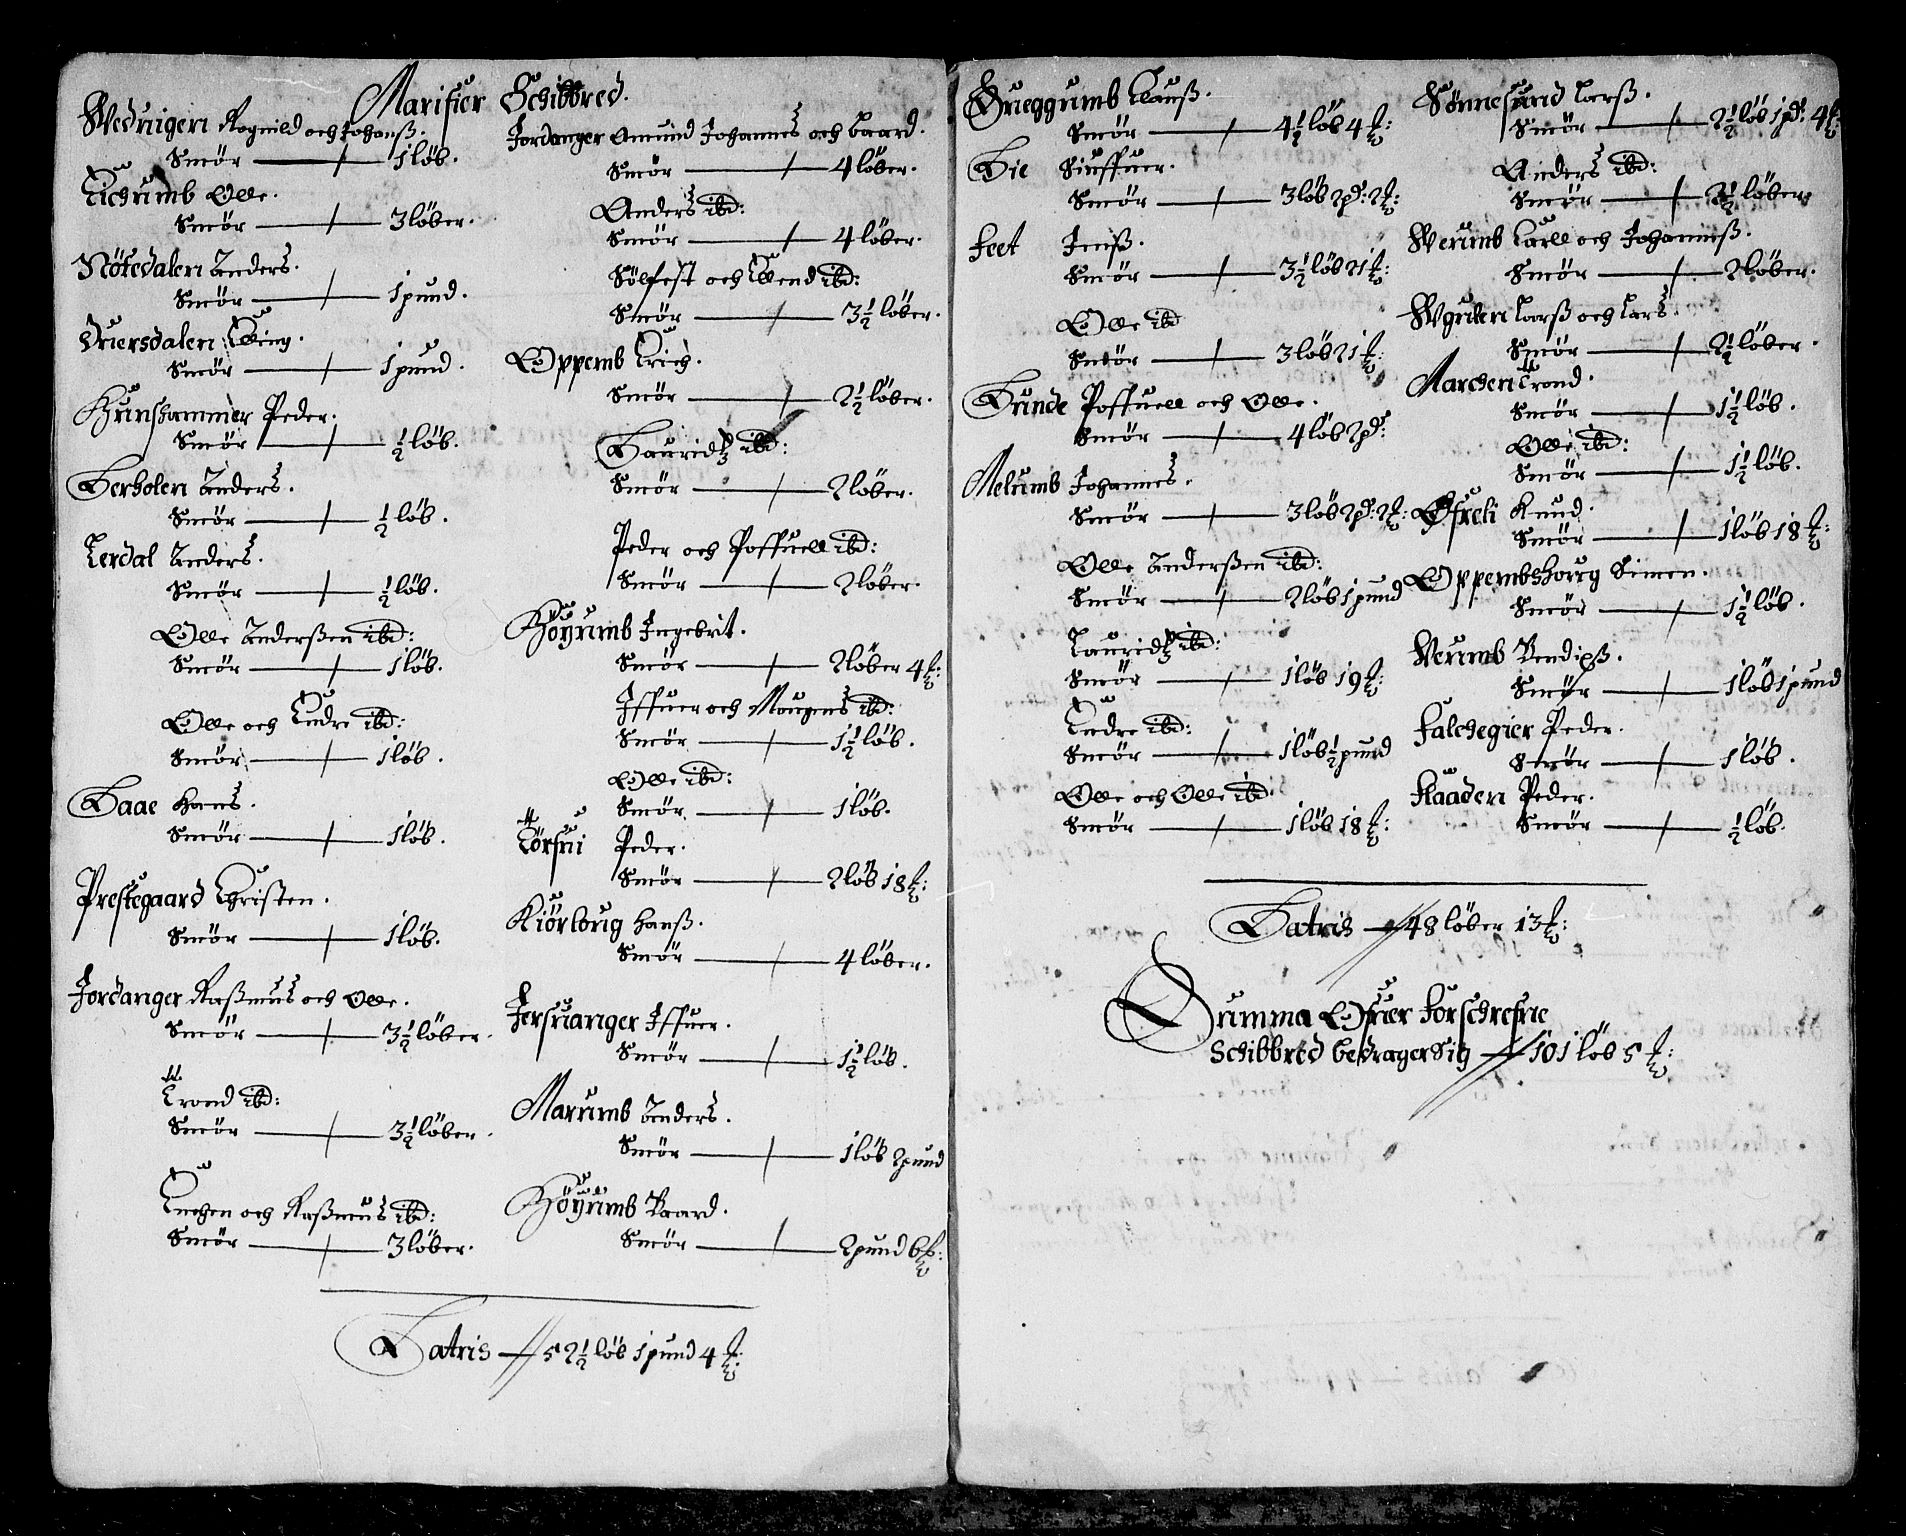 Marifier Schibbred.
Wedvigen Rognild och Johanß.
Smör 1 löb.
Lichumb Olle.
Smör 3 löber.
Nötedalen Anders.
Smör 1 pund.
Duersdalen Elling.
Smör 1 pund.
Hunshammer Peder.
Smör ½ löb.
Berholen Anders.
Smör ½ löb.
Lerdal Anders.
Smör ½ löb.
Olle Anderßen ibd:
Smör 1 löb.
Olle och Endre ibd:
Smör 1 löb.
Baae Hans.
Smör 1 löb.
Prestegaard Christen.
Smör 1 löb.
Jordanger Raßmus och Olle.
Smör 3½ löber.
Trond ibd:
Smör 3½ löber.
Engen och Raßmus ibd:
Smör 3 löber.
Jordanger Amund Johannes och Baard.
Smör 4 löber.
Anders ibd:
Smör 4 löber.
Sölfest och Ellend ibd:
Smör 3½ löber.
Oppemb Erich.
Smör 2½ löber.
Lauridtz ibd:
Smör 2 löber.
Peder och Poffuell ibd:
Smör 2 löber.
Höyumb Ingebrit.
Smör 2 löber 4 ℔:
Iffuer och Mougens ibd:
Smör 1½ löb.
Olle ibd:
Smör 1 löb.
Törfui Peder.
Smör 2 löb 18 ℔:
Kiörloug Hanß.
Smör 4 löber.
Jersuanger Iffuer.
Smör 1½ löb.
Marumb Anders.
Smör 1 löb 2 pund
Höyumb Baard.
Smör 2 pund 6 ℔:
Latris 52½ löb 1 pund 4 ℔:
Drueggumb Clauß.
Smör 4½ löb 4 ℔:
Bie Siuffuer.
Smör 3 löb 2 pd: 2 ℔:
Feet Jenß.
Smör 3½ löb 21 ℔:
Olle ibd
Smör 3 löb 21 ℔:
Bunde Poffuell och Olle.
Smör 4 löb 2 pd:
Melumb Johannes.
Smör 3 löb 2 pd: 2 ℔:
Olle Anderßen ibd:
Smör 2 löb 1 pund
Lauridtz ibd:
Smör 1 löb 19 ℔:
Endre ibd:
Smör 1 löb ½ pund
Olle och Olle ibd:
Smör 1 löb 18 ℔:
Sönnesund Larß.
Smör 2½ löb 1 pd: 4 ℔:
Anders ibd:
Smör 2½ löber.
Werumb Carll och Johanniß.
Smör 2 löber.
Wgulen Larß och Lars.
Smör 2½ löber.
Marchen Trond.
Smör 1½ löb.
Olle ibd:
Smör 1½ löb.
Øfreli Knud.
Smör 1 löb 18 ℔:
Oppembshoug Simen.
Smör 1½ löb.
Verumb Bendixß.
Smör 1 löb 1 pund
Falchegier Peder.
Smör 1 löb.
Flaaden Peder.
Smör ½ löb.
Latris 48 löber 13 ℔:
Summa Ofuer Forschrefne
Schibbred bedrager Sig 101 löb 5 ℔: